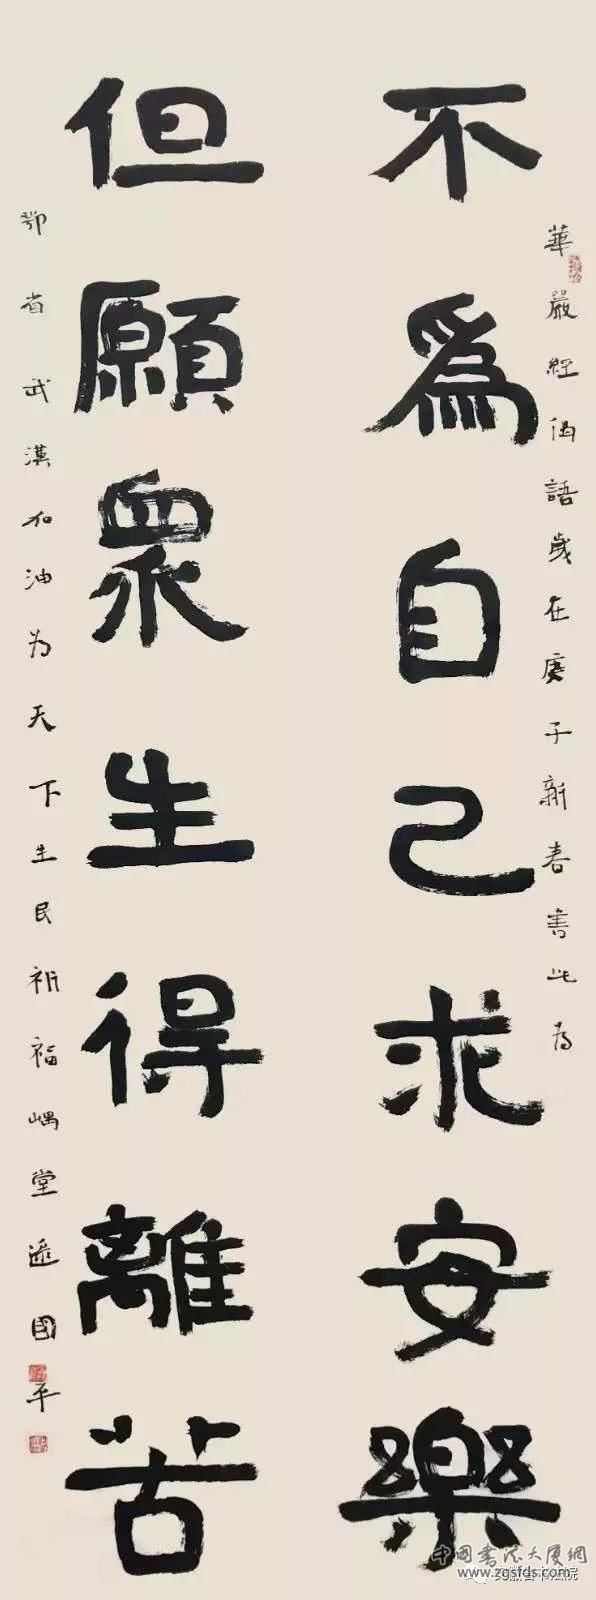 不爲自己求安樂
但願眾生得離苦
華嚴經偈語歲在庚子新春書此为
鄂省武漢加油为天下生民祈福嵎堂逯國平
中国书法大厦網
www.zgsfds.com
安徽省书法院